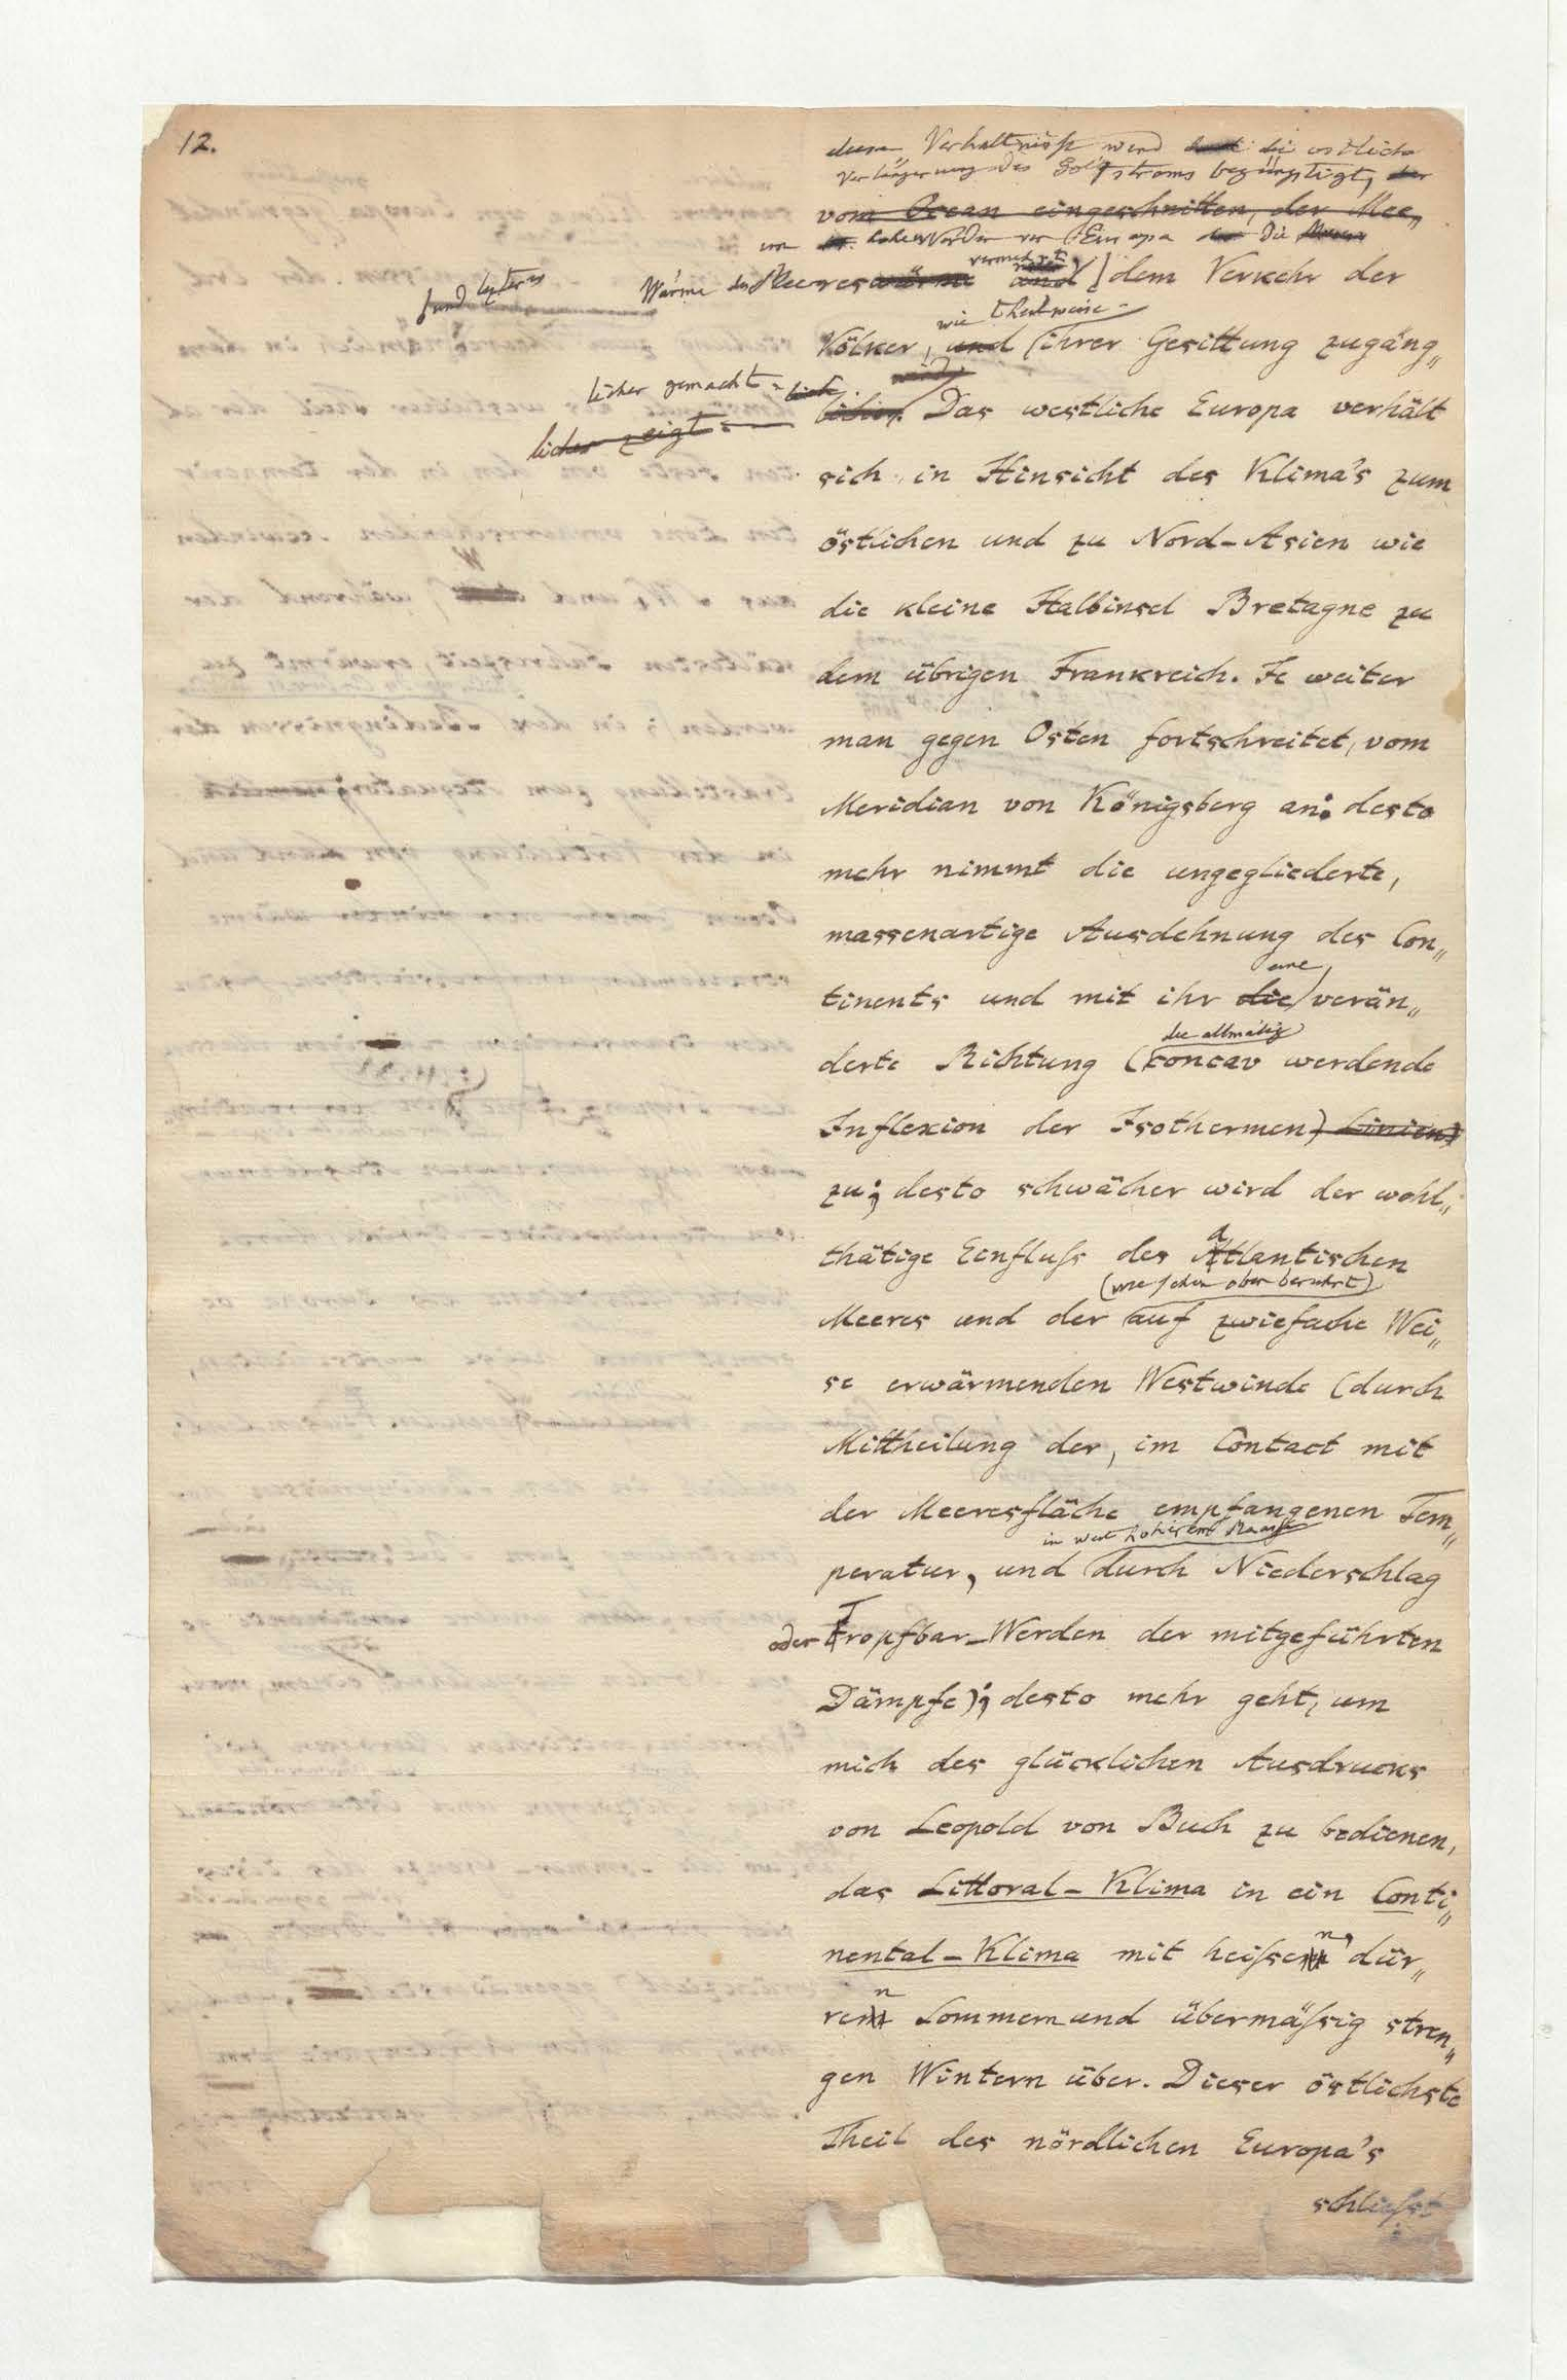 12.
diese Verhältnisse wird die östliche
Verlängerung des Golfstroms begünstigt, der
vom Ocean eingeschnitten, der Mee„
hohen Norden von Europa die
und letzteres Wärme des Meereswärme vermehrt und dem Verkehr der
wie theilweise
Völker, und ihrer Gesittung zugäng„
licher gemacht wird
licher. Das westliche Europa verhält
licher zeigt
sich in Hinsicht des Klima's zum
östlichen und zu Nord-Asien wie
die kleine Halbinsel Bretagne zu
dem übrigen Frankreich. Je weiter
man gegen Osten fortschreitet, vom
Meridian von Königsberg an: desto
mehr nimmt die ungegliederte,
massenartige Ausdehnung des Con„
eine
tinents und mit ihr die verän„
die allmälig
derte Richtung (concav werdende
Inflexion der Isothermen) Linien)
zu; desto schwächer wird der wohl„
thätige Einfluſs des Atlantischen
(wie schon oben berührt)
Meeres und der auf zwiefache Wei„
se erwärmenden Westwinde (durch
Mittheilung der, im Contact mit
der Meeresfläche empfangenen Tem„
in weit höherem Maaſse
peratur, und durch Niederschlag
oder Tropfbar-Werden der mitgeführten
Dämpfe); desto mehr geht, um
mich des glücklichen Ausdrucks
von Leopold von Buch zu bedienen,
das Littoral-Klima in ein Conti„
nental-Klima mit heiſsen, dür„
ren Sommern und übermäſsig stren„
gen Wintern über. Dieser östlichste
Theil des nördlichen Europa's
schlieſst